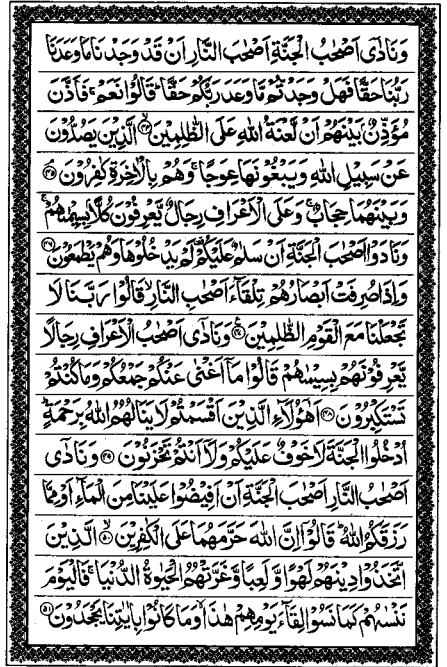 وَنَادٰٓى اَصْحٰبُ الْجَنَّةِ اَصْحٰبَ النَّارِ اَنْ قَدْ وَجَدْنَا مَا وَعَدَنَا
رَبُّنَا حَقًّا فَهَلْ وَجَدْتُّمْ مَّا وَعَدَ رَبُّكُمْ حَقًّا ؕ قَالُوْا نَعَمْ ۚ فَاَذَّنَ
مُؤَذِّنٌۢ بَيْنَهُمْ اَنْ لَّعْنَةُ اللّٰهِ عَلَى الظّٰلِمِيْنَ ۙ﴿۴۴﴾ الَّذِيْنَ يَصُدُّوْنَ
عَنْ سَبِيْلِ اللّٰهِ وَيَبْغُوْنَهَا عِوَجًا ۚ وَهُمْ بِالْاٰخِرَةِ كٰفِرُوْنَ ﴿۴۵﴾
وَبَيْنَهُمَا حِجَابٌ ۚ وَعَلَى الْاَعْرَافِ رِجَالٌ يَّعْرِفُوْنَ كُلًّاۢ بِسِيْمٰىهُمْ ۚ
وَنَادَوْا اَصْحٰبَ الْجَنَّةِ اَنْ سَلٰمٌ عَلَيْكُمْ ۟ لَمْ يَدْخُلُوْهَا وَهُمْ يَطْمَعُوْنَ ﴿۴۶﴾
وَاِذَا صُرِفَتْ اَبْصَارُهُمْ تِلْقَآءَ اَصْحٰبِ النَّارِ ۙ قَالُوْا رَبَّنَا لَا
تَجْعَلْنَا مَعَ الْقَوْمِ الظّٰلِمِيْنَ ﴿۴۷﴾ وَنَادٰٓى اَصْحٰبُ الْاَعْرَافِ رِجَالًا
يَّعْرِفُوْنَهُمْ بِسِيْمٰىهُمْ قَالُوْا مَاۤ اَغْنٰى عَنْكُمْ جَمْعُكُمْ وَمَا كُنْتُمْ
تَسْتَكْبِرُوْنَ ﴿۴۸﴾ اَهٰٓؤُلَآءِ الَّذِيْنَ اَقْسَمْتُمْ لَا يَنَالُهُمُ اللّٰهُ بِرَحْمَةٍ ؕ
اُدْخُلُوا الْجَنَّةَ لَا خَوْفٌ عَلَيْكُمْ وَلَاۤ اَنْتُمْ تَحْزَنُوْنَ ﴿۴۹﴾ وَنَادٰٓى
اَصْحٰبُ النَّارِ اَصْحٰبَ الْجَنَّةِ اَنْ اَفِيْضُوْا عَلَيْنَا مِنَ الْمَآءِ اَوْ مِمَّا
رَزَقَكُمُ اللّٰهُ ؕ قَالُوْۤا اِنَّ اللّٰهَ حَرَّمَهُمَا عَلَى الْكٰفِرِيْنَ ۙ﴿۵۰﴾ الَّذِيْنَ
اتَّخَذُوْا دِيْنَهُمْ لَهْوًا وَّلَعِبًا وَّغَرَّتْهُمُ الْحَيٰوةُ الدُّنْيَا ۚ فَالْيَوْمَ
نَنْسٰىهُمْ كَمَا نَسُوْا لِقَآءَ يَوْمِهِمْ هٰذَا ۙ وَمَا كَانُوْا بِاٰيٰتِنَا يَجْحَدُوْنَ ﴿۵۱﴾